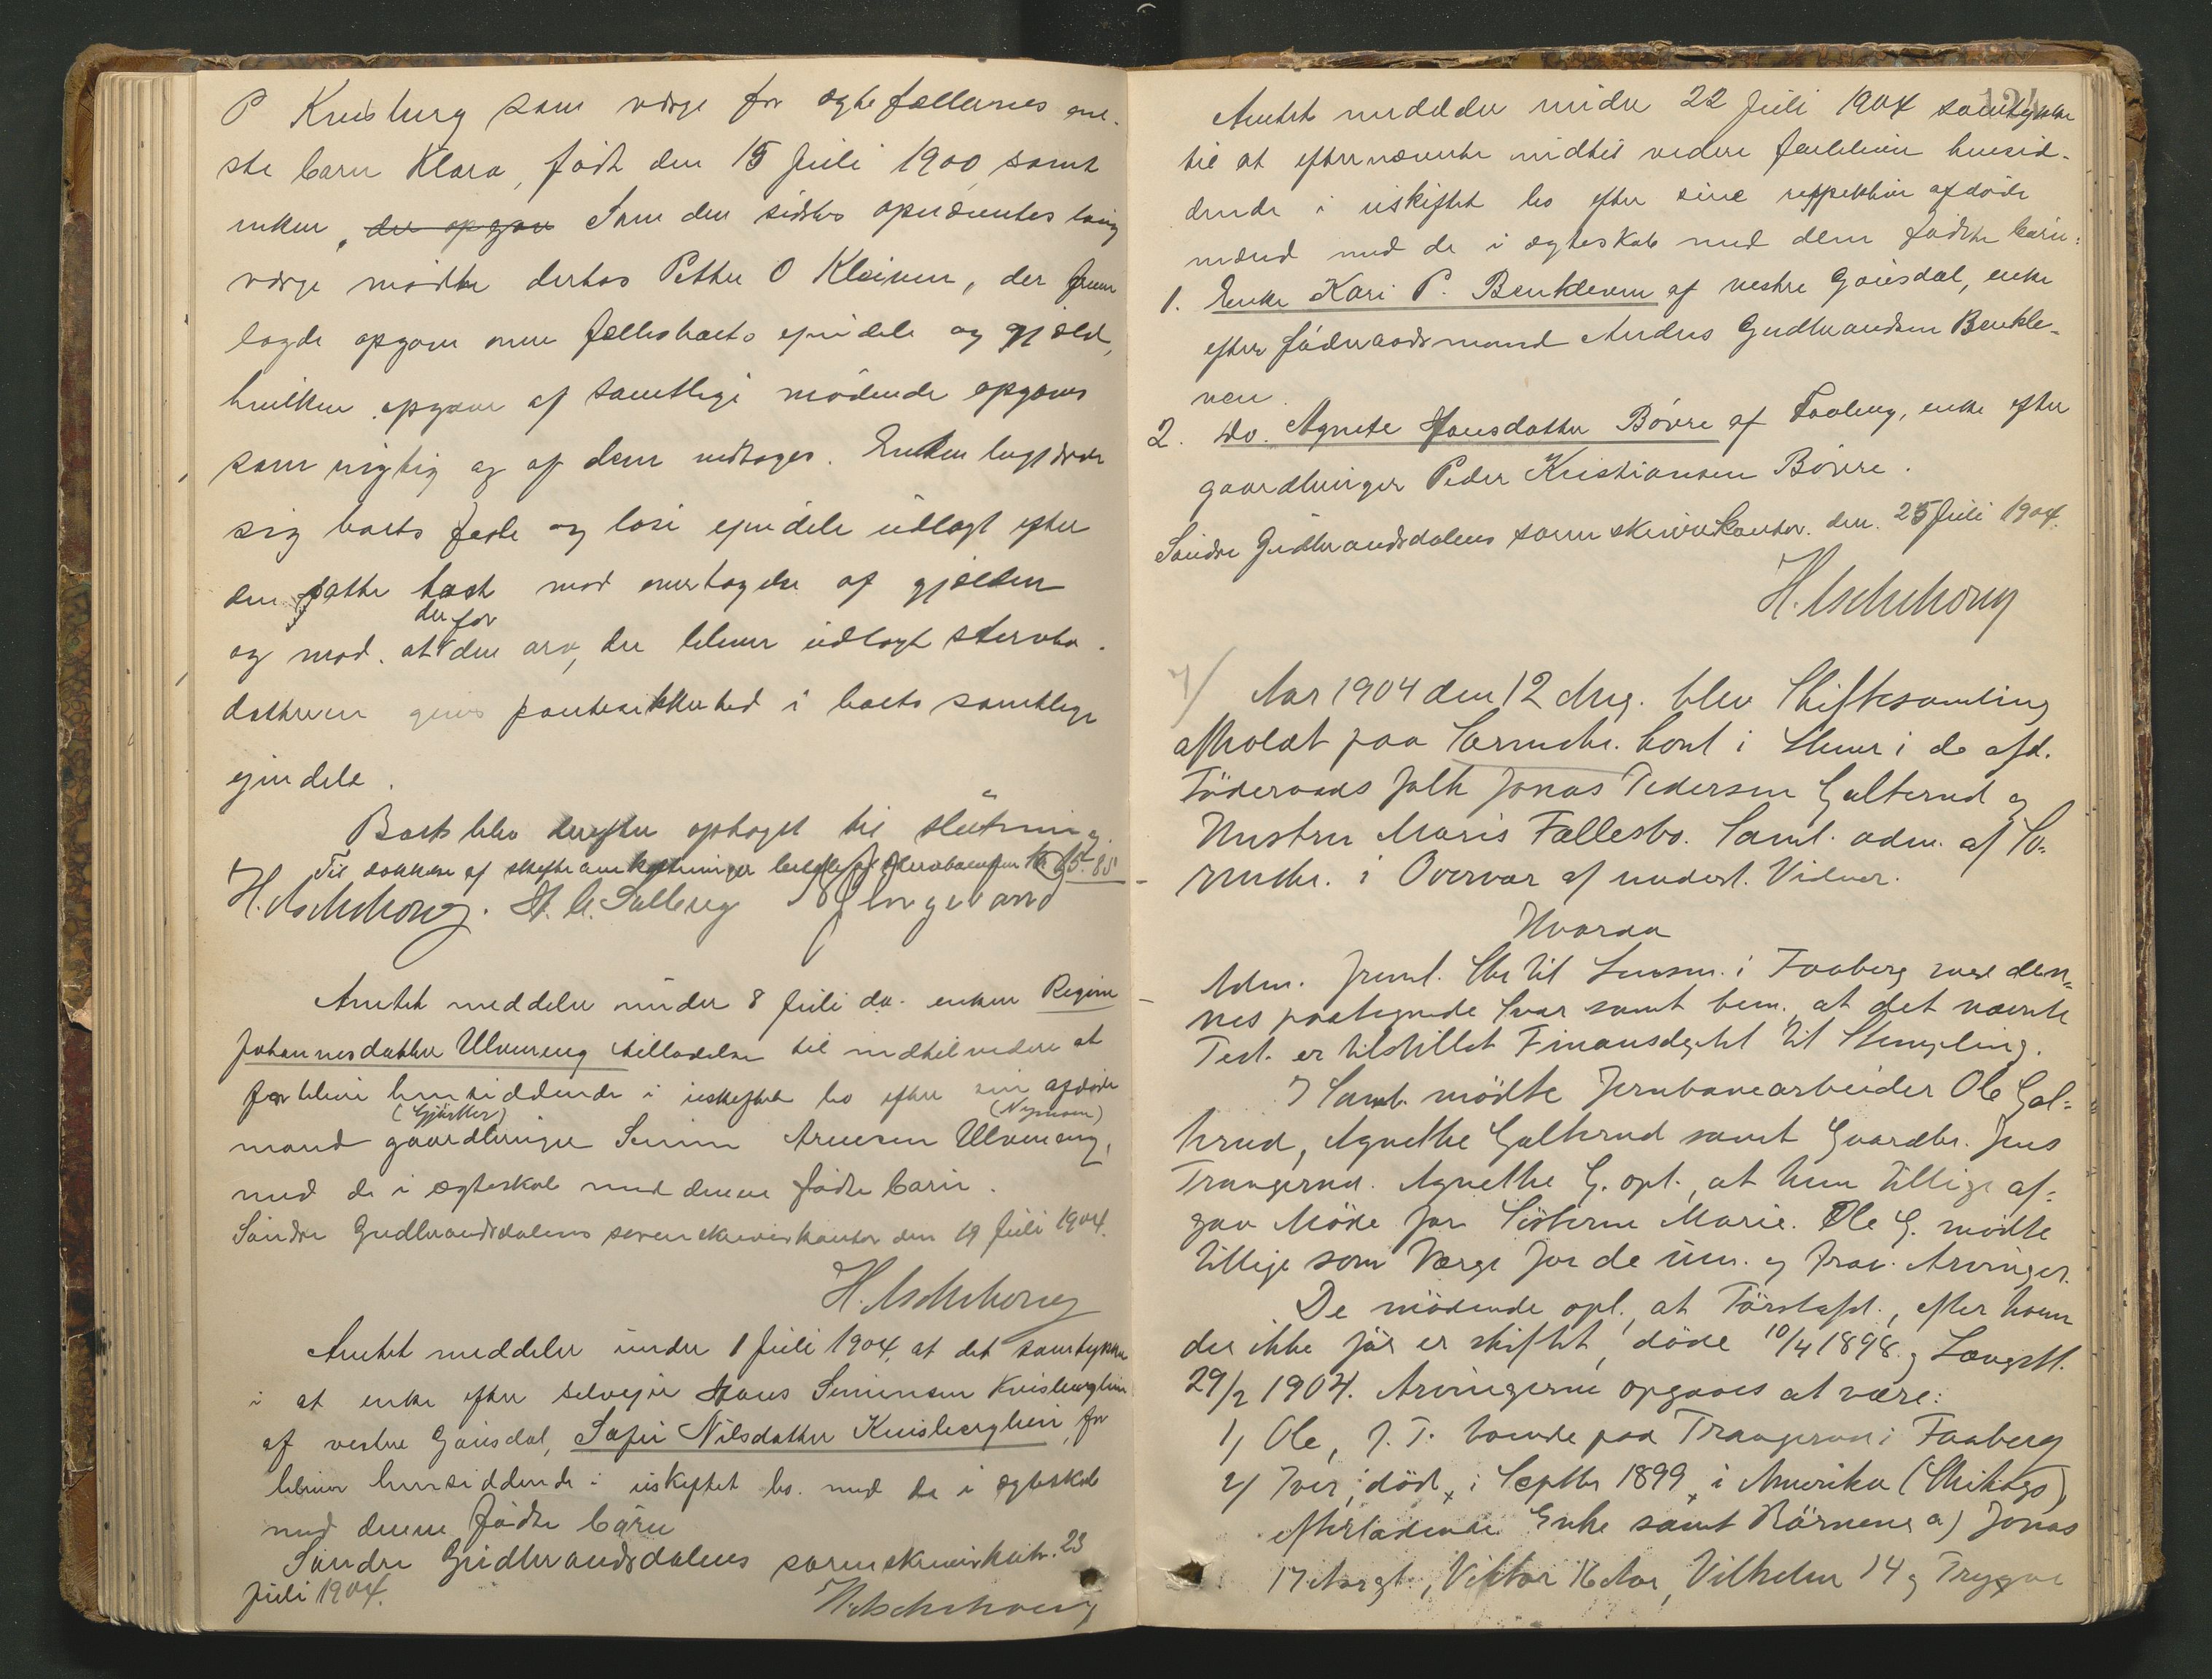 P Kruisburg som værge for ægtefællernes ene-
ste barn Klara, født den 15 Juli 1900, samt
enken, der opgav Som den sidstes opnævntes laug
værge mødte derhos Petter O Kleiven, der frem
lagde opgave over fællesboets eiendele og gjæld,
hvilken opgave af samtlige mødende opgaves
som rigtig og af dem vedtoges. Enken begjærede
sig boets faste og løse eiendele udlagt efter
den satte taxt mod overtagelse af gjælden
og mod. at der for den arv, der bliver udlagt stervbo-
datteren gives pantesikkerhed i boets samtlige
eiendele.
Boet blev derefter optaget til slutning.
Til dækkelse af skifteomkostninger
H. Aschehoug. H. C. Solberg
Amtet meddeler under 8 Juli da. enken Regine
Johannesdatter Ulveneng tilladelse til indtil videre at
forblive hensiddende i uskiftet bo efter sin afdøde
(Gjørlker) (Nymoen)
mand gaardbruger Simen Arnesen Ulveneng,
med de i ægteskab med denne fødte børn.
Søndre Gudbrandsdalens sorenskriverkontor den 19 Juli 1904.
H. Aschehoug
Amtet meddeler under 1 Juli 1904, at det samtykker
i at enke efter selveier Hans Simensen Kruisberglien
af vestre Gausdal, Sofie Nilsdatter Kruisberglien, for
bliver hensiddende i uskiftet bo. med de i ægteskab
med denne fødte børn
Søndre Gudbrandsdalens sorenskriverkontr. 23
Juli 1904.
H. Aschehoug
124
Amtet meddeler under 22 Juli 1904 samtykke
til at efternævnte indtil videre forbliver hensid-
dende i uskiftet bo efter sine respektive afdøde
mænd med de i ægteskab med dem fødte børn:
1. Enke Kari P. Benkleven af vestre Gausdal, enke
efter føderaadsmand Andres Gudbrandsen Benkle-
ven.
2. Do. Agnete Hansdatter Bövre af Faaberg, enke efter
gaardbruger Peder Kristiansen Bövre.
Søndre Gudbrandsdalens sorenskriverkontor. den. 25 Juli 1904.
H. Aschehoug
7/ Aar 1904 den 12 Aug. blev Skiftesamling
afholdt paa Sorenskr. Cont i Stuer i de afd.
Föderaads folk Jonas Pedersen Galterud og
Hustru Maris Fællesbo. Saml. adm. af So-
renskr. i Overvær af underst. Vidner.
Hvorda
Adm. freml. Skr til Lensm. i Faaberg med den-
nes paategnede Svar samt bem. at det nævnte
Test. er tilstillet Finansdeptet til Stempling.
I Saml. mödte Jernbanearbeider Ole Gal-
terud, Agnethe Galterud samt Gaardbr. Jens
Trangerud. Agnethe G. opl., at hun tillige af-
gav Möde for Söstern Marie. Ole G. mödte
tillige som Værge for de um. og frav. Arvinger.
De mödende opl., at Förstafd., efter hvem
der ikke för er skiftet, döde 10/4 1898 og Længstl.
29/2 1904. Arvingerne opgaves at være:
1) Ole, J. T. boende paa Trangerud i Faaberg
2) Iver, död, i Septbr 1899, i Amerika (Chikago),
efterladende Enke samt Börnene a) Jonas
17 Aar gl., Viktor 16 Aar, Vilhelm 14 og Trygve